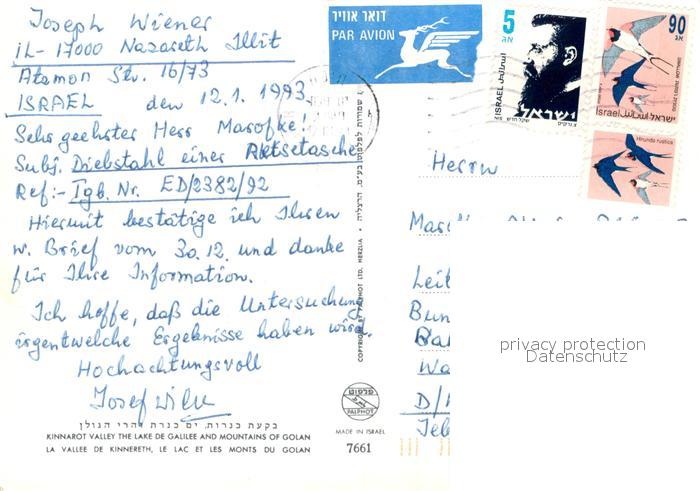 Joseph Wiener
IL- 17000 Nazareth Illit
Atamon Str. 16/73
ISRAEL den 12.1.1993
Sehr geehrter Herr Marofke!
Subj. Diebstahl einer Reisetasche
Ref:- Tgb. Nr. ED/2382/92
Hiermit bestätige ich Ihren
w. Brief vom 30.12. und danke
für Ihre Information.
Ich hoffe, daß die Untersuchung
irgentwelche Ergebnisse haben wird.
Hochachtungsvoll
Josef
בקעת כנרות, ים כנרת והרי הגולן
KINNAROT VALLEY THE LAKE DE GALILEE AND MOUNTAINS OF GOLAN
LA VALLEE DE KINNERETH, LE LAC ET LES MONTS DU GOLAN
COPYRIGHT BY PALPHOT LTD. HERZLIA • כל הזכויות שמורות לפלפוט בע״מ. הרצליה
פלפוט
PALPHOT
MADE IN ISRAEL
7661
דואר אוויר
PAR AVION
5
אג
ISRAEL
ישראל
90
אג
Israel ישראל
Hirundo rustica
Herrn
Leit
Bun
Wa
D/
Tel
privacy protection
Datenschutz